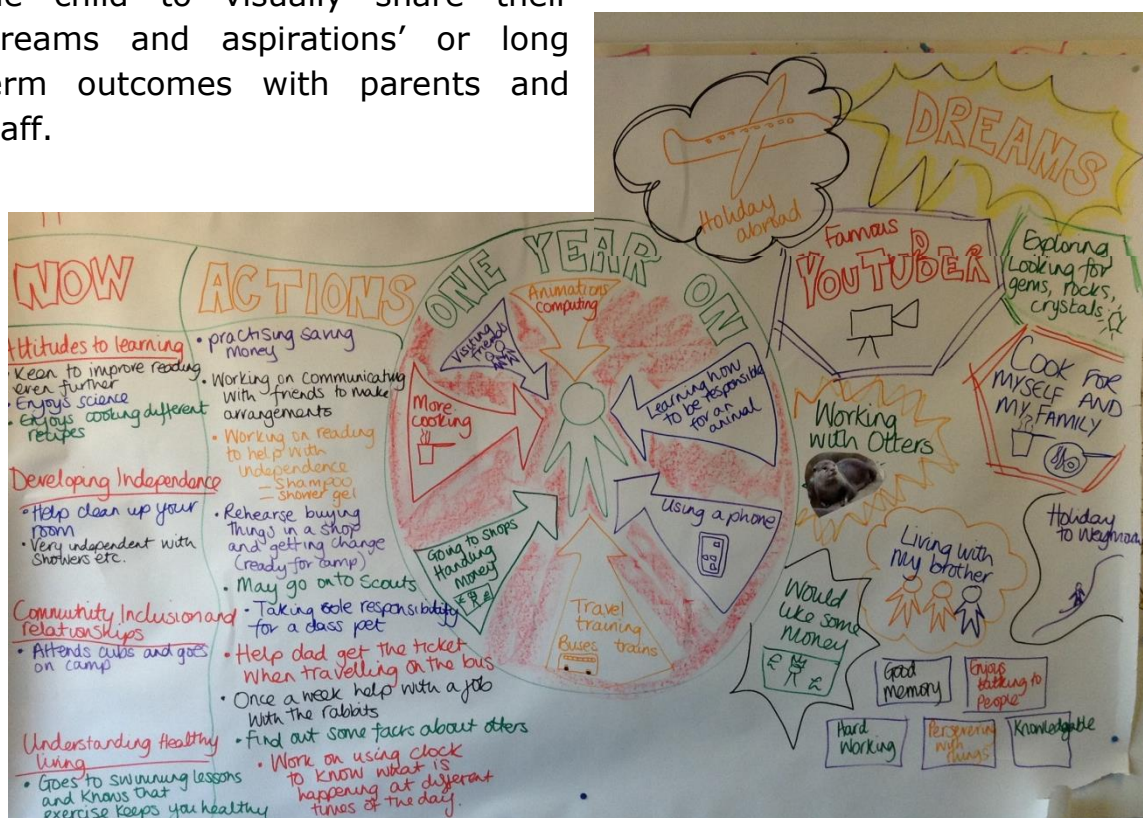 child to visually share their
dreams and aspirations' or long
term outcomes with parents and
staff.
NOW
Attitudes to learning
• Keen to improve reading
even further
• Enjoys science
• Enjoys cooking different
recipes
Developing Independence
• Help clean up your
room
• Very independent with
showers etc.
Community Inclusion and
relationships
• Attends cubs and goes
on camp
Understanding Healthy
living
• Goes to swimming lessons
and knows that
exercise keeps you healthy
ACTIONS
• practising saving
money
• Working on communicating
with friends to make
arrangements
• Working on reading
to help with
independence
- Shampoo
- Shower gel
• Rehearse buying
things in a shop
and getting change
(ready for camp)
• May go onto Scouts
• Taking sole responsibility
for a class pet
• Help dad get the ticket
when travelling on the bus
• Once a week help with a job
with the rabbits
• Find out some facts about otters
• Work on using clock
to know what is
happening at different
times of the day.
ONE YEAR ON
Animations
computing
Visiting
friends
More
cooking
Going to shops
Handling
money
£ £
Learning how
to be responsible
for an
animal
Using a phone
Travel
training
Buses trains
DREAMS
Holiday
abroad
Famous
YOUTUBER
Exploring,
Looking for
gems, rocks,
crystals
COOK FOR
MYSELF AND
MY FAMILY
Working
with Otters
Living with
my brother
Holiday
to
Would
like some
money
£ £
Good
memory
Enjoys
talking to
People
Hard
Working
Persevering
with
things
Knowledgable